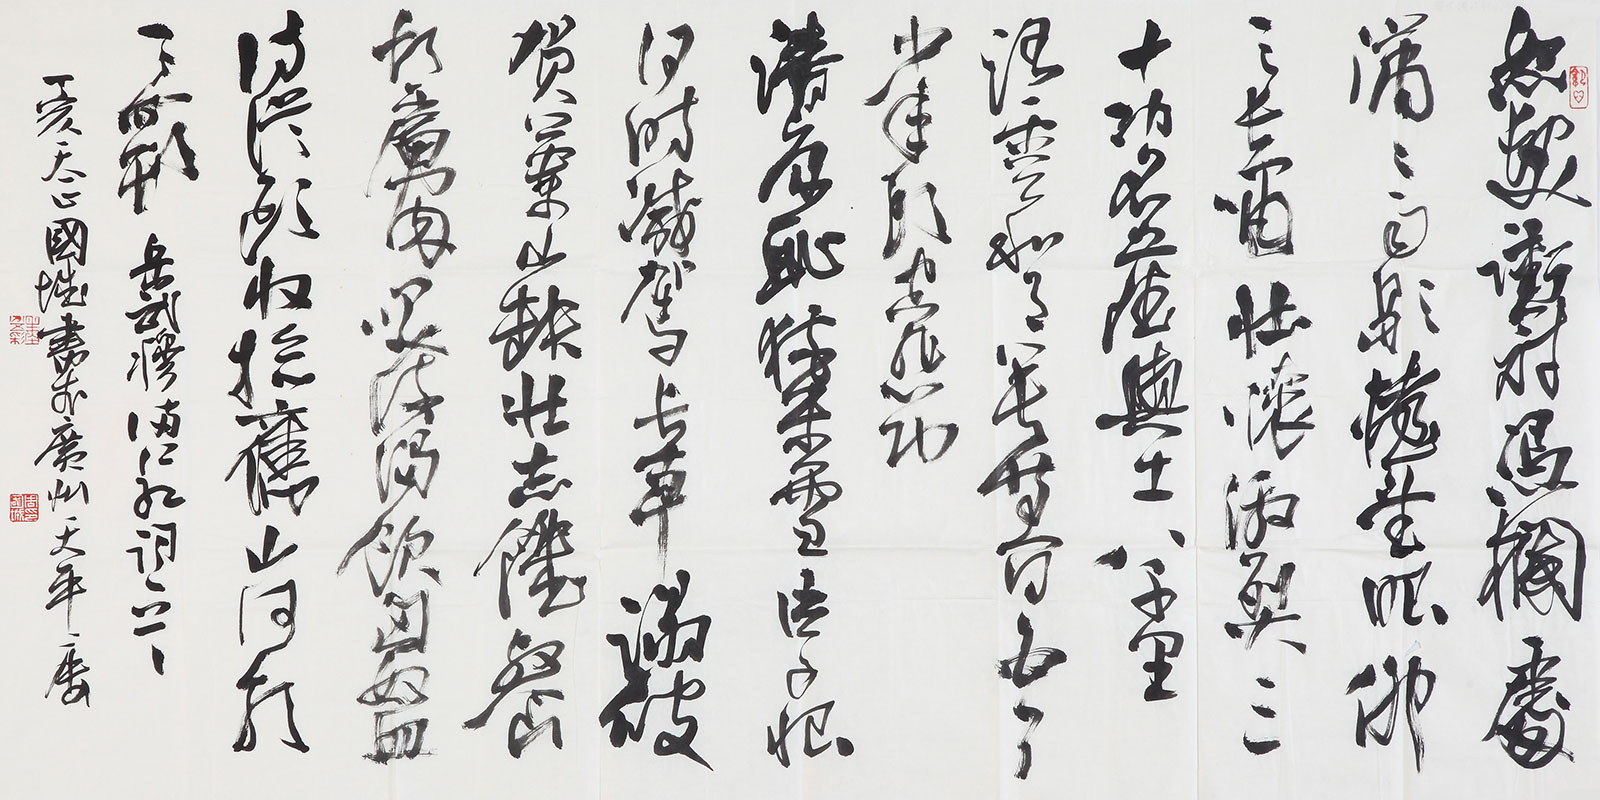 怒髮衝冠憑欄處
瀟瀟雨歇抬望眼仰
天長嘯壯懷激烈三
十功名塵與土八千里
路雲和月莫等閒白了
少年頭空悲切
靖康恥猶未雪臣子恨
何時滅駕長車踏破
賀蘭山缺壯志饑餐
胡虜肉笑談渴飲匈奴血
待從頭收拾舊山河朝
天闕 岳武穆滿江紅詞一首
丁亥國城書於廣州天平